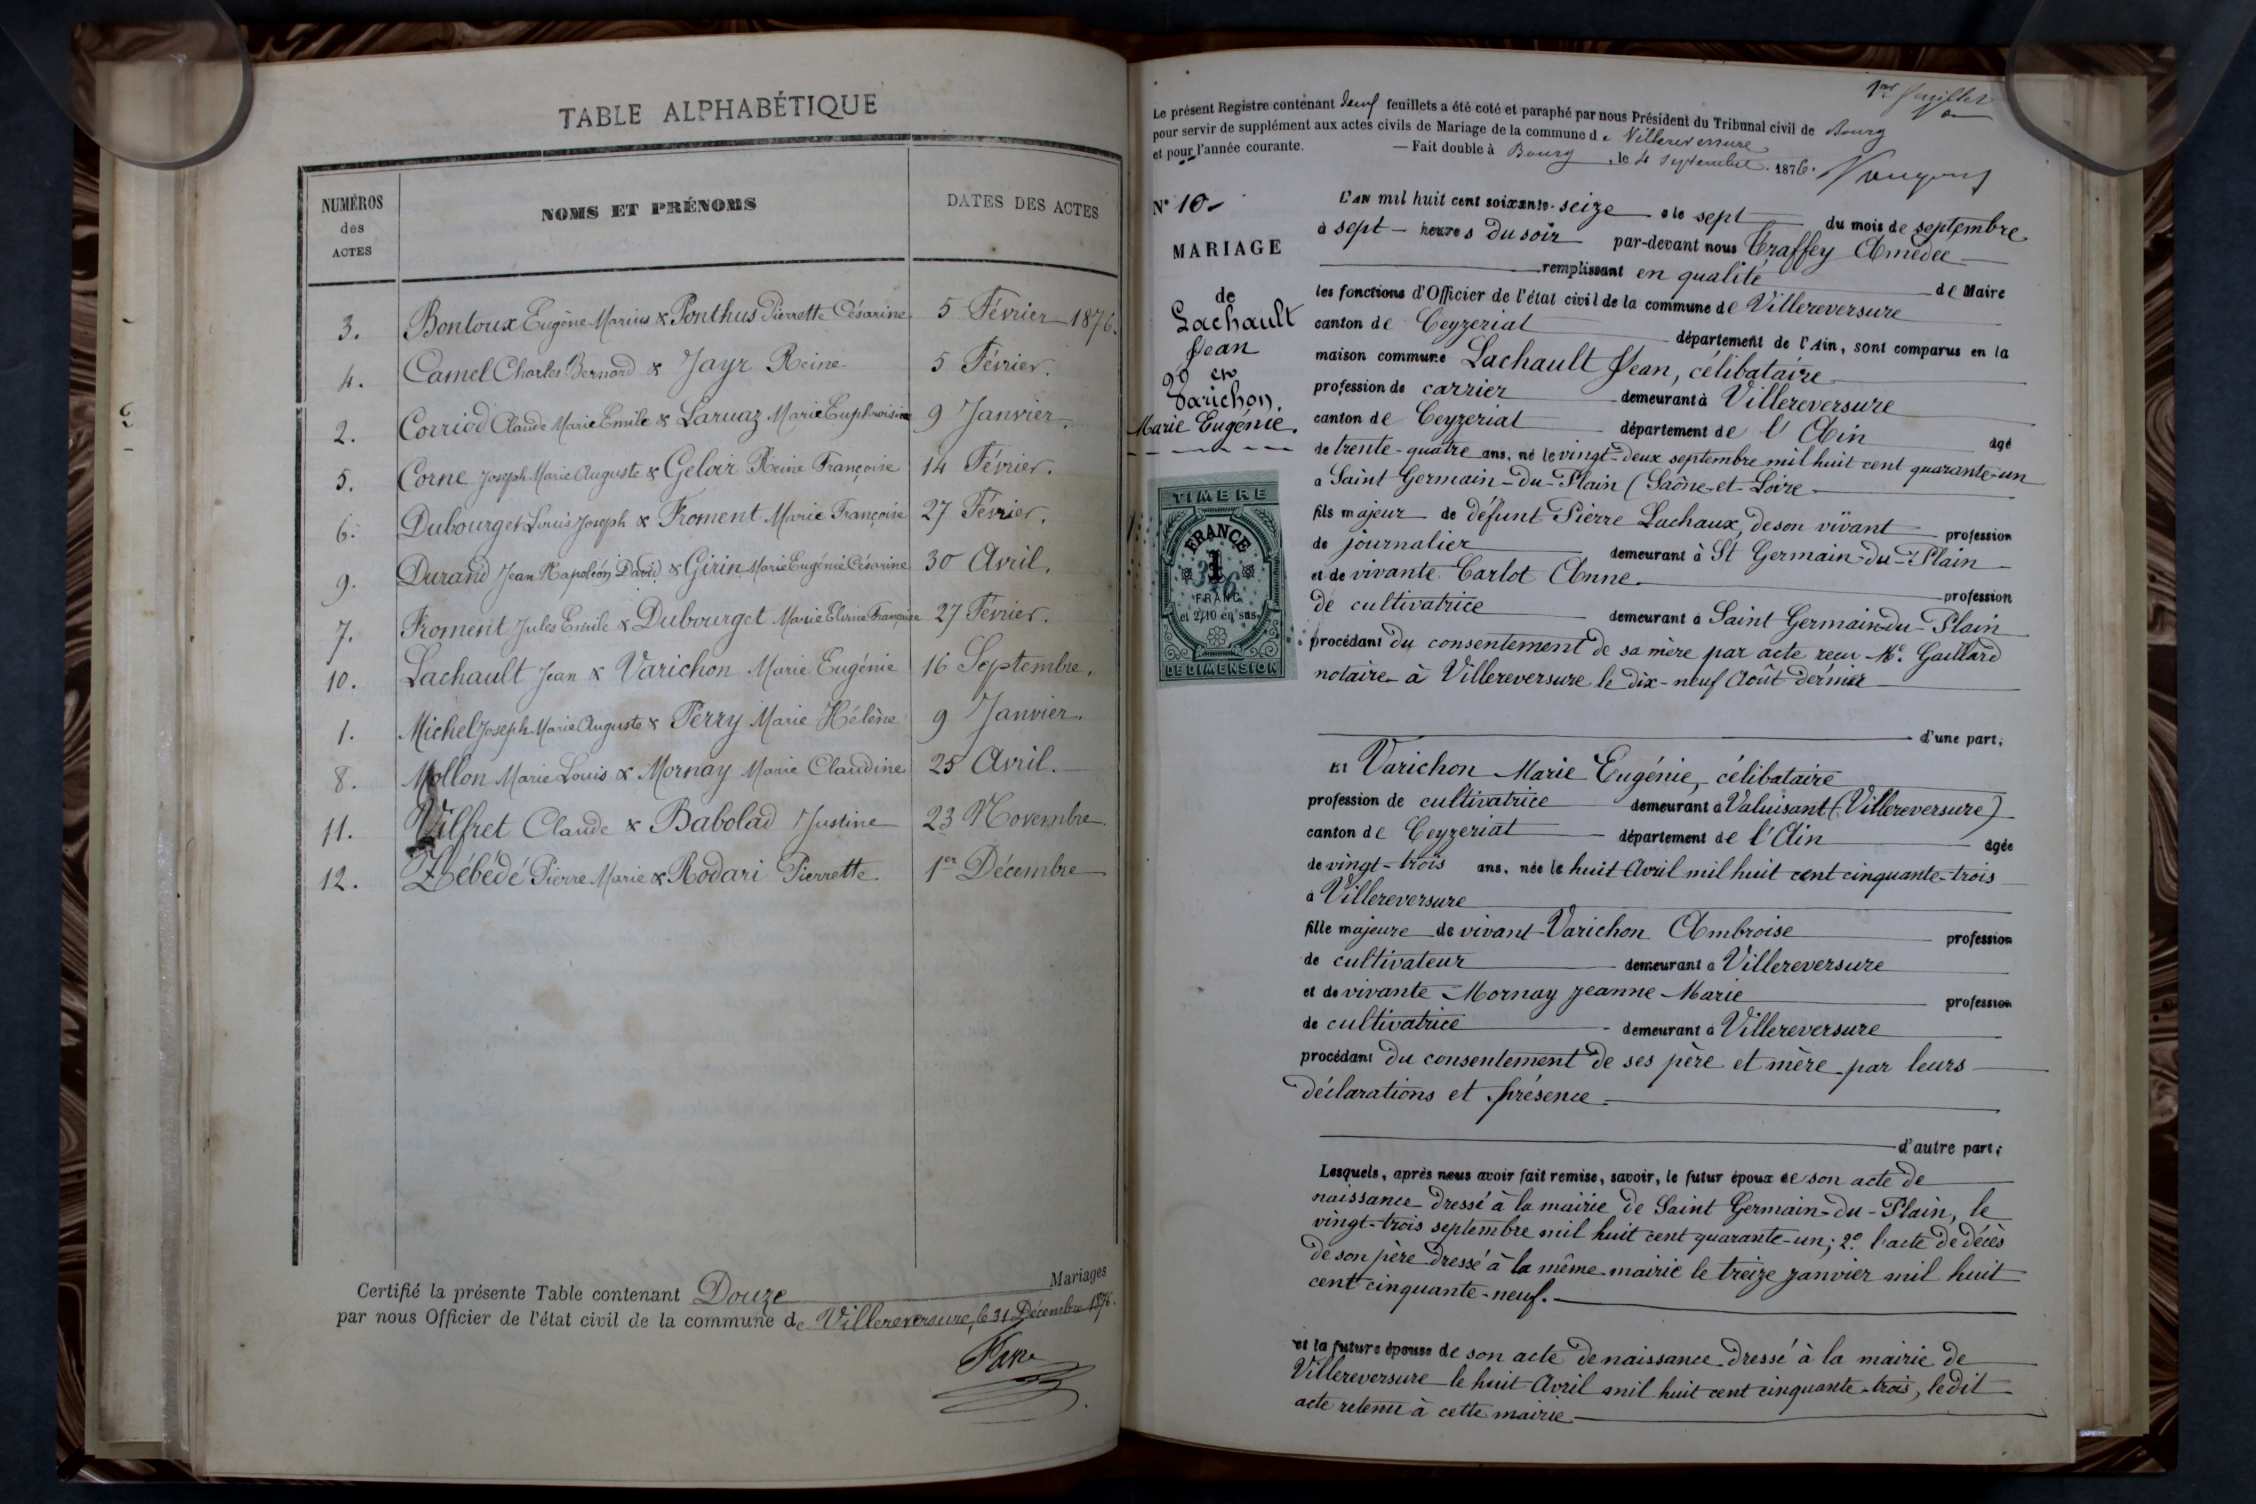 TABLE ALPHABÉTIQUE
NUMÉROS des ACTES
NOMS ET PRÉNOMS
DATES DES ACTES
3. Bontoux Eugène Marius & Ponthus Pierrette Césarine 5 Février 1876.
4. Camel Charles Bernard & Jayr Reine 5 Février.
2. Corriod Claude Marie Emile & Laruaz Marie Euphroisine 9 Janvier.
5. Corne Joseph Marie Auguste & Geloir Reine Françoise 14 Février.
6. Dubourget Louis Joseph & Froment Marie Françoise 27 Février.
9. Durand Jean Napoléon David & Girin Marie Eugénie Césarine 30 Avril.
7. Froment Jules Emile & Dubourget Marie Elvine Françoise 27 Février.
10. Lachault Jean & Varichon Marie Eugénie 16 Septembre.
1. Michel Joseph Marie Auguste & Perry Marie Hélène 9 Janvier.
8. Mollon Marie Louis & Mornay Marie Claudine 25 Avril.
11. Vilfret Claude & Babolad Justine 23 Novembre
12. Zébédé Pierre Marie & Rodari Pierrette 1er Décembre
Certifié la présente Table contenant Douze Mariages
par nous Officier de l'état civil de la commune de Villereversure, le 31 Décembre 1876.
1er feuillet
Le présent Registre contenant deux feuillets a été coté et paraphé par nous Président du Tribunal civil de Bourg
pour servir de supplément aux actes civils de Mariage de la commune de Villereversure
et pour l'année courante. — Fait double à Bourg, le 4 septembre 1876.
N° 10.
MARIAGE
de
Lachault
Jean
et
Varichon
Marie Eugénie.
TIMBRE
FRANCE
1
FRANC
et 2/10 en sus
DE DIMENSION
L'AN mil huit cent soixante-seize le sept du mois de septembre
à sept heures du soir par-devant nous Traffey Amédée
remplissant en qualité de Maire
les fonctions d'Officier de l'état civil de la commune de Villereversure
canton de Ceyzeriat département de l'Ain, sont comparus en la
maison commune Lachault Jean, célibataire
profession de carrier demeurant à Villereversure
canton de Ceyzeriat département de l'Ain agé
de trente-quatre ans, né le vingt-deux septembre mil huit cent quarante-un
à Saint Germain-du-Plain (Saône-et-Loire
fils majeur de défunt Pierre Lachaux, de son vivant profession
de journalier demeurant à St Germain-du-Plain
et de vivante Carlot Anne profession
de cultivatrice demeurant à Saint Germain-du-Plain
procédant du consentement de sa mère par acte reçu Me. Gaillard
notaire à Villereversure le dix-neuf Août dernier
d'une part;
Et Varichon Marie Eugénie, célibataire
profession de cultivatrice demeurant à Valuisant (Villereversure)
canton de Ceyzeriat département de l'Ain agée
de vingt-trois ans, née le huit Avril mil huit cent cinquante-trois
à Villereversure
fille majeure de vivant Varichon Ambroise profession
de cultivateur demeurant à Villereversure
et de vivante Mornay Jeanne Marie profession
de cultivatrice demeurant à Villereversure
procédant du consentement de ses père et mère par leurs
déclarations et présence
d'autre part;
Lesquels, après nous avoir fait remise, savoir, le futur époux de son acte de
naissance dressé à la mairie de Saint Germain-du-Plain, le
vingt-trois septembre mil huit cent quarante-un; 2° l'acte de décès
de son père dressé à la même mairie le treize janvier mil huit
cent cinquante-neuf.
et la future épouse de son acte de naissance dressé à la mairie de
Villereversure le huit Avril mil huit cent cinquante-trois, ledit
acte retenu à cette mairie